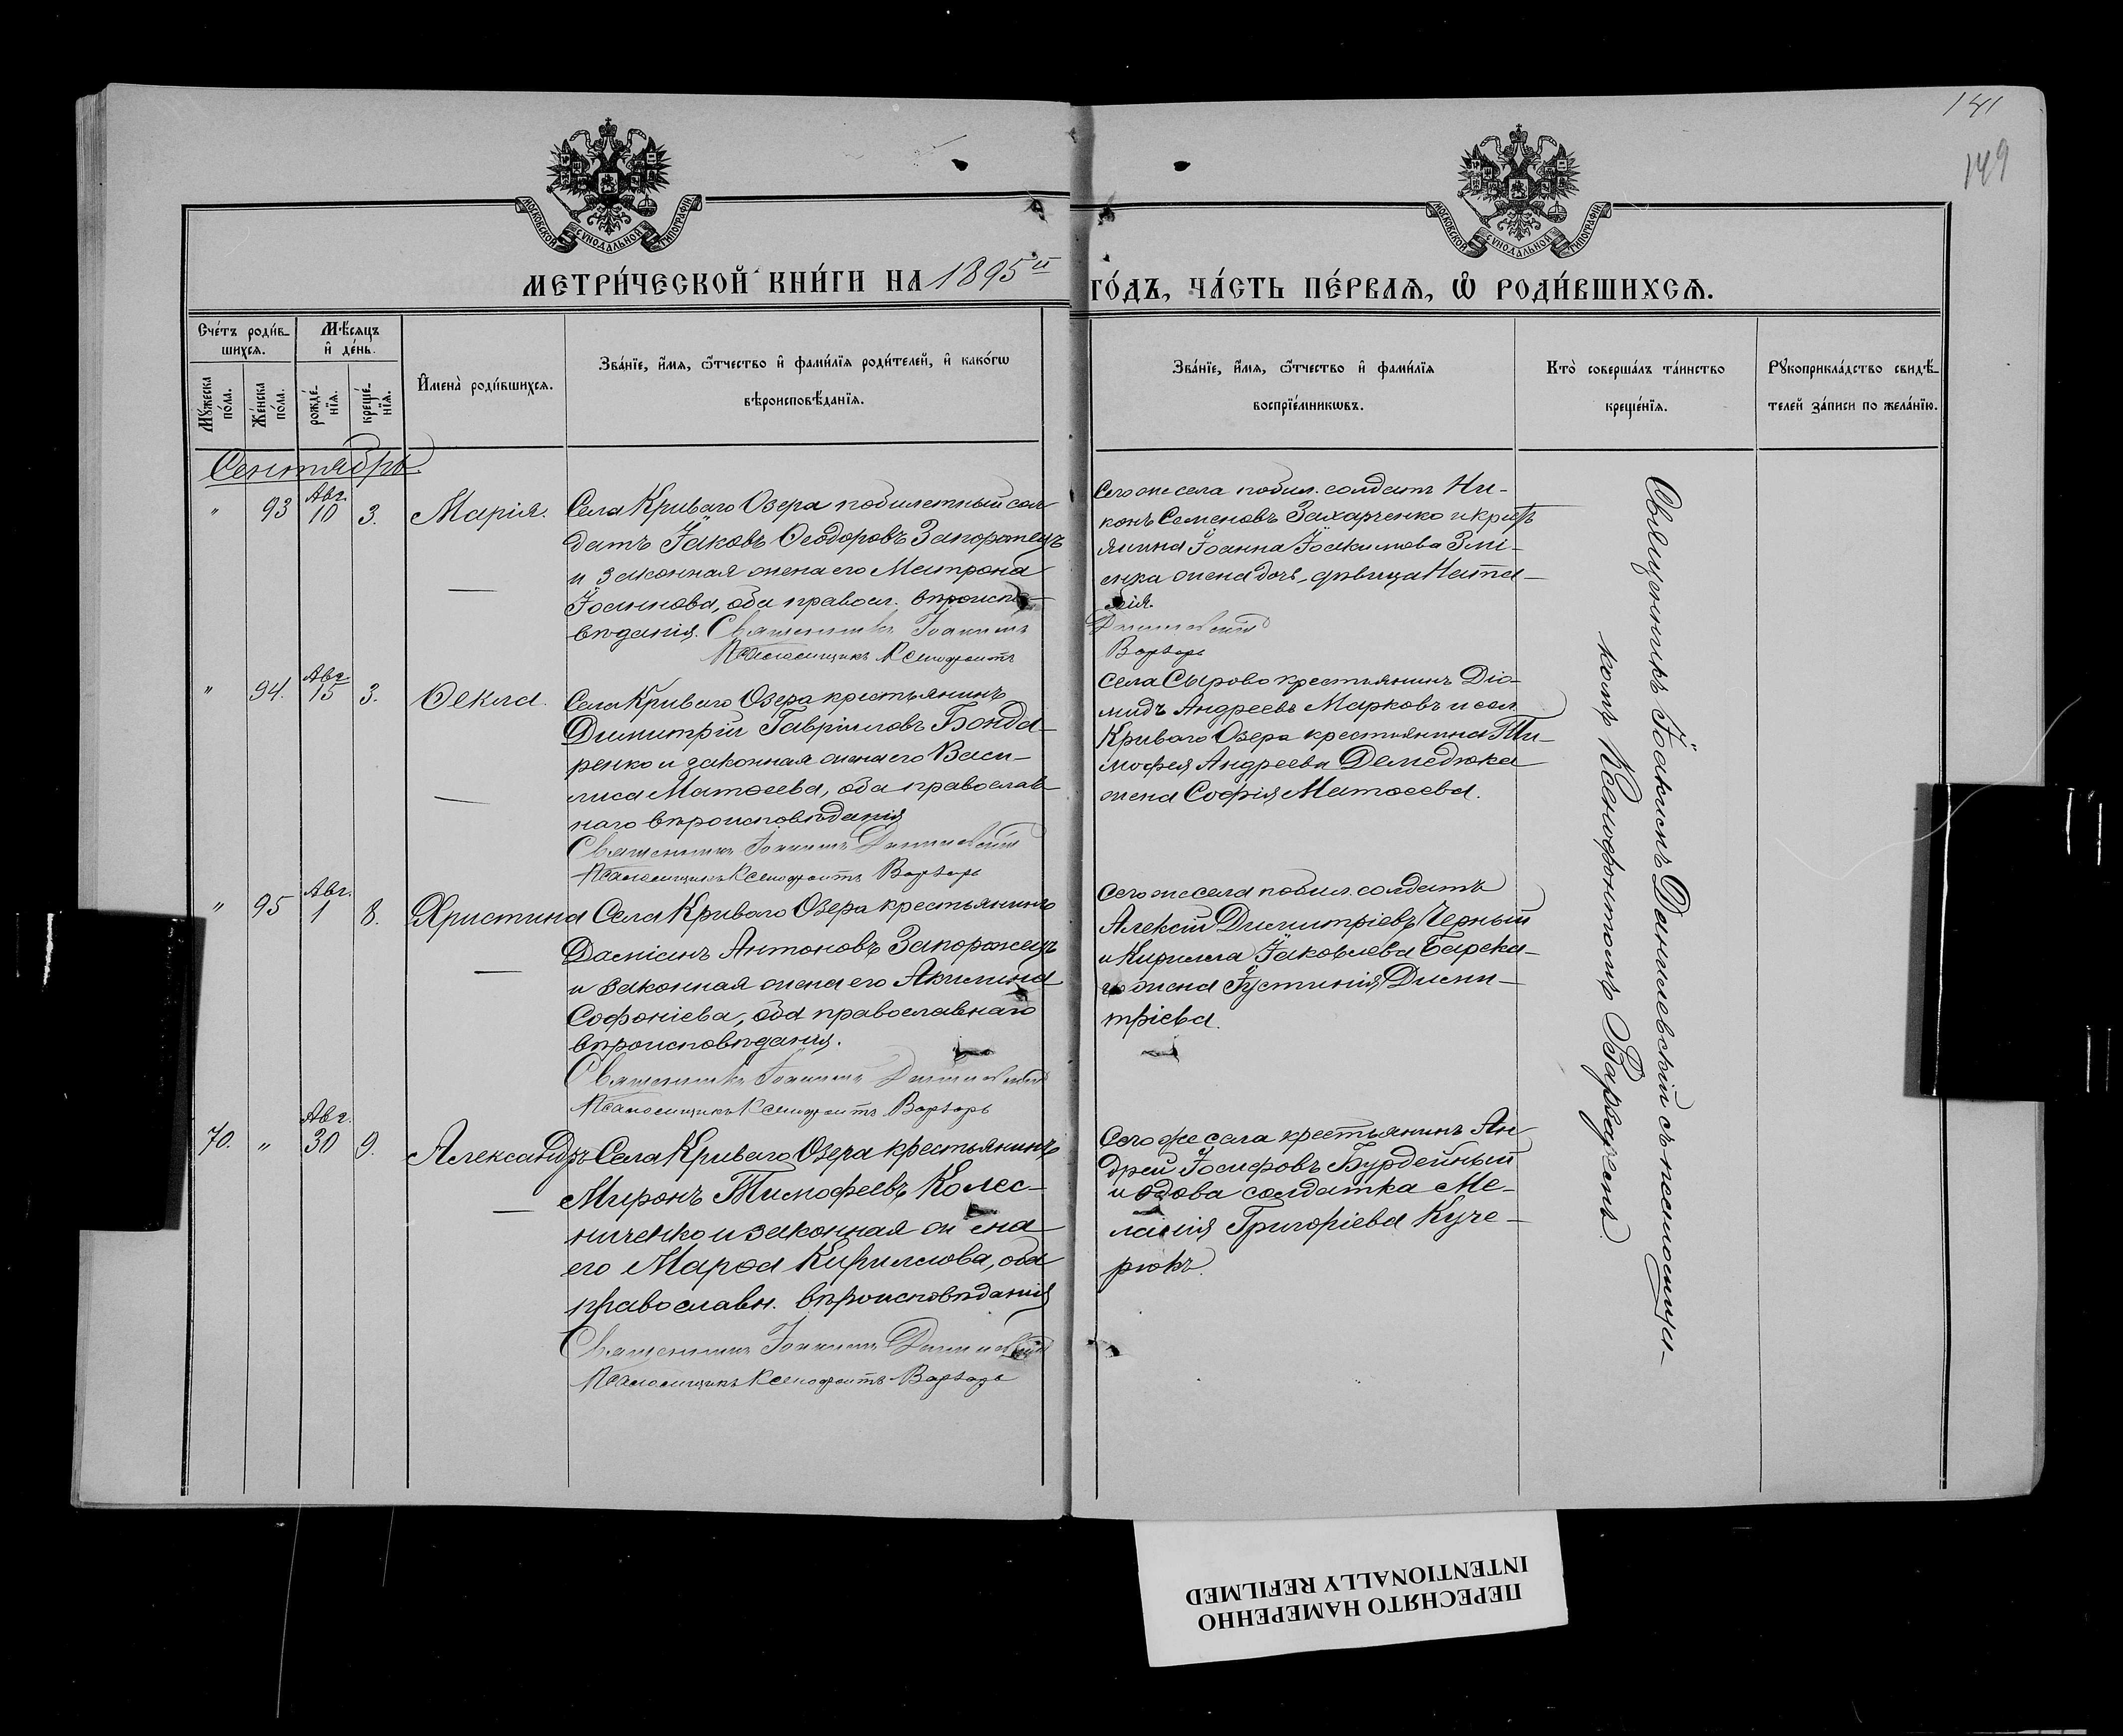 141
149
МОСКОВСКОЙ СѴНОДАЛЬНОЙ ТИПОГРАФІИ
МОСКОВСКОЙ СѴНОДАЛЬНОЙ ТИПОГРАФІИ
МЕТРИ́ЧЕСКОЙ КНИ́ГИ НА 1895й ГО́ДЪ, ЧА́СТЬ ПЕ́РВАѦ, Ѡ҆ РОДИ́ВШИХСѦ.
Сче́тъ роди́в-
шихсѧ.
Мѣ́сѧцъ
и҆ де́нь.
Мꙋ́жеска
по́ла.
Же́нска
по́ла.
рожде́-
нїѧ.
креще́-
нїѧ.
И҆мена̀ роди́вшихсѧ.
Зва́нїе, и҆́мѧ, ѻ҆́тчество и҆ фами́лїѧ роди́телей, и҆ како́гѡ
вѣроисповѣ́данїѧ.
Зва́нїе, и҆́мѧ, ѻ҆́тчество и҆ фами́лїѧ
воспрїе́мникѡвъ.
Кто̀ соверша́лъ та́инство
креще́нїѧ.
Рꙋкоприкла́дство свидѣ́-
телей за́писи по жела́нїю.
Сентябрь
" 93 Авг. 10 3. Марія.
Села Криваго Озера побилетный сол-
датъ Іаковъ Ѳеодоровъ Запорожецъ
и законная жена его Матрона
Іоаннова, оба правосл. вѣроиспо-
вѣданія. Священникъ Іоакимъ Данилевскій
Псаломщикъ Ксенофонтъ Варзарь
Сего же села побил. солдатъ Ни-
конъ Семеновъ Захарченко и крестъ
янина Іоанна Іоакимова Змі-
енка жена дочь, дѣвица Ната-
лія.
" 94. Авг. 15 3. Ѳекла.
Села Криваго Озера крестьянинъ
Димитрій Гавріиловъ Бонда-
ренко и законная жена его Васи-
лиса Матѳеева, оба православ-
наго вѣроисповѣданія
Священникъ Іоакимъ Данилевскій
Псаломщикъ Ксенофонтъ Варзарь
Села Сырово крестьянинъ Діо-
мидъ Андреевъ Марковъ и сел.
Криваго Озера крестьянина Ти-
мофея Андреева Демедюка
жена Софія Матѳеева.
" 95 Авг. 1 8. Христина
Села Криваго Озера крестьянинъ
Даміанъ Антоновъ Запорожецъ
и законная жена его Акилина
Софоніева, оба православнаго
вѣроисповѣданія.
Священникъ Іоакимъ Данилевскій
Псаломщикъ Ксенофонтъ Варзарь
Сего же села побил. солдатъ
Алексій Димитріевъ Черный
и Кирилла Іаковлева Барска-
го жена Іустинія Дими-
тріева.
70. " Авг. 30 9. Александръ
Села Криваго Озера крестьянинъ
Миронъ Тимофеевъ Колес-
ниченко и законная жена
его Марѳа Кириллова, оба
православн. вѣроисповѣданія
Священникъ Іоакимъ Данилевскій
Псаломщикъ Ксенофонтъ Варзарь
Сего же села крестьянинъ Ан-
дрей Іосифовъ Бурдейный
и вдова солдатка Ме-
ланія Григоріева Куче-
рюкъ.
Священникъ Іоакимъ Данилевскій съ псаломщи-
комъ Ксенофонтомъ Варзаремъ.
ПЕРЕСНЯТО НАМЕРЕННО
INTENTIONALLY REFILMED